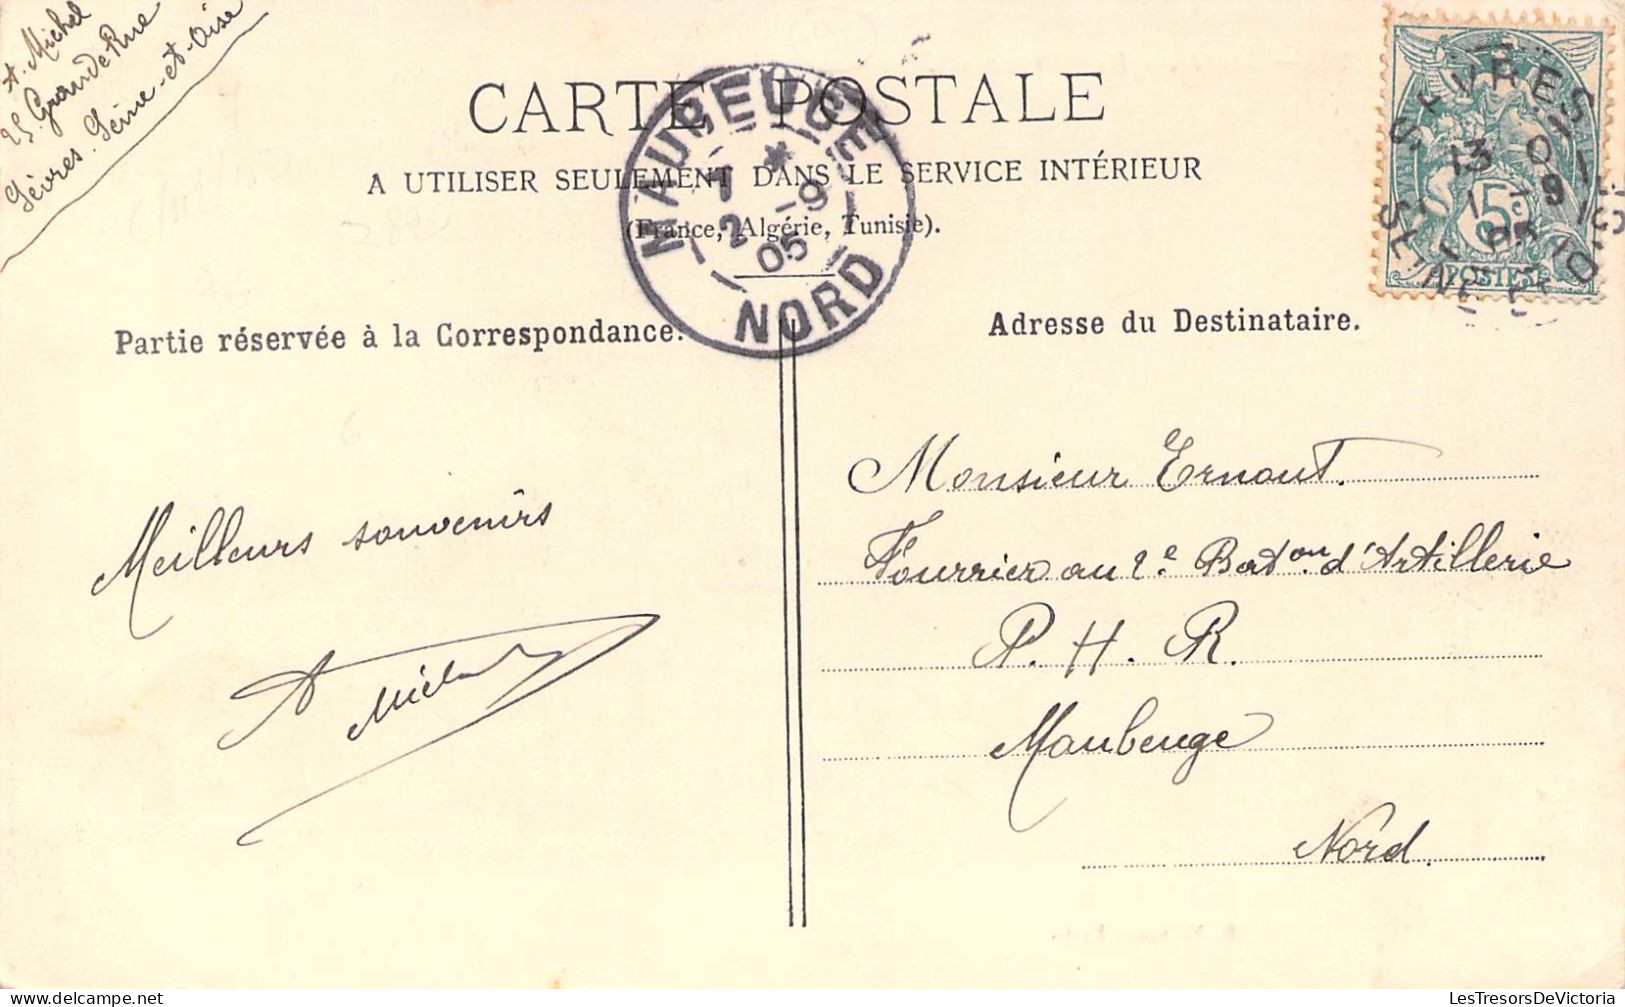 A. Michel
25. Grande Rue
Sèvres. Seine-et-Oise
CARTE POSTALE
A UTILISER SEULEMENT DANS LE SERVICE INTÉRIEUR
(France, Algérie, Tunisie).
MAUBEUGE
2 -9
05
NORD
SÈVRES
13
1 -9
05
SEINE ET O
5c
POSTES
Partie réservée à la Correspondance.
Adresse du Destinataire.
Meilleurs souvenirs
A Michel
Monsieur Ernout.
Fourrier au 2e Bat.on d'Artillerie
P. H. R.
Maubeuge
Nord.
LesTresorsDeVictoria
LesTresorsDeVictoria.com